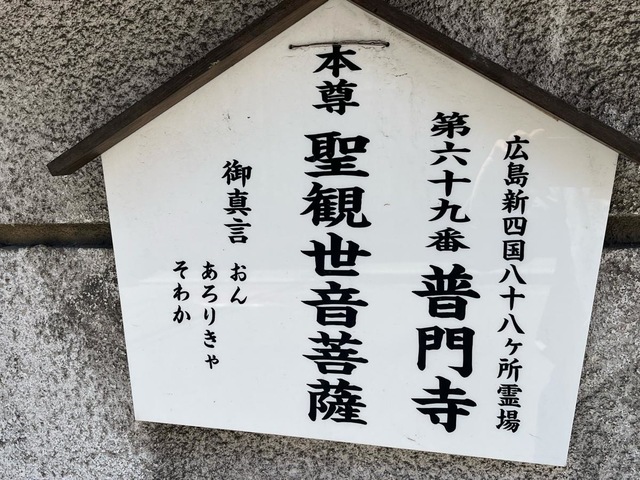 広島新四国八十八ヶ所霊場
第六十九番 普門寺
本尊 聖観世音菩薩
御真言 おん
あろりきゃ
そわか